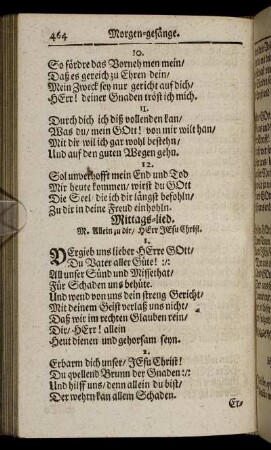 464 Morgen-gesänge.
10.
So fördre das Vornehmen mein/
Daß es gereich zu Ehren dein/
Mein Zweck sey nur gericht auf dich/
HErr! deiner Gnaden tröst ich mich.
11.
Durch dich ich diß vollenden kan/
Was du/ mein GOtt! von mir wilt han/
Mit dir wil ich gar wohl bestehn/
Und auf den guten Wegen gehn.
12.
Sol unverhofft mein End und Tod
Mir heute kommen/ wirst du GOtt
Die Seel/ die ich dir längst befohln/
Zu dir in deine Freud einholn.
Mittags-lied.
M. Allein zu dir/ HErr JEsu Christ.
1.
VErgieb uns lieber HErre GOtt/
Du Vater aller Güte! :/:
All unser Sünd und Missethat/
Für Schaden uns behüte.
Und wend von uns dein streng Gericht/
Mit deinem Geist verlaß uns nicht/
Daß wir im rechten Glauben rein/
Dir/ HErr! allein
Heut dienen und gehorsam seyn.
2.
Erbarm dich unser/ JEsu Christ!
Du quellend Brunn der Gnaden :/:
Und hilff uns/ denn allein du bist/
Der wehrn kan allem Schaden.
Er-